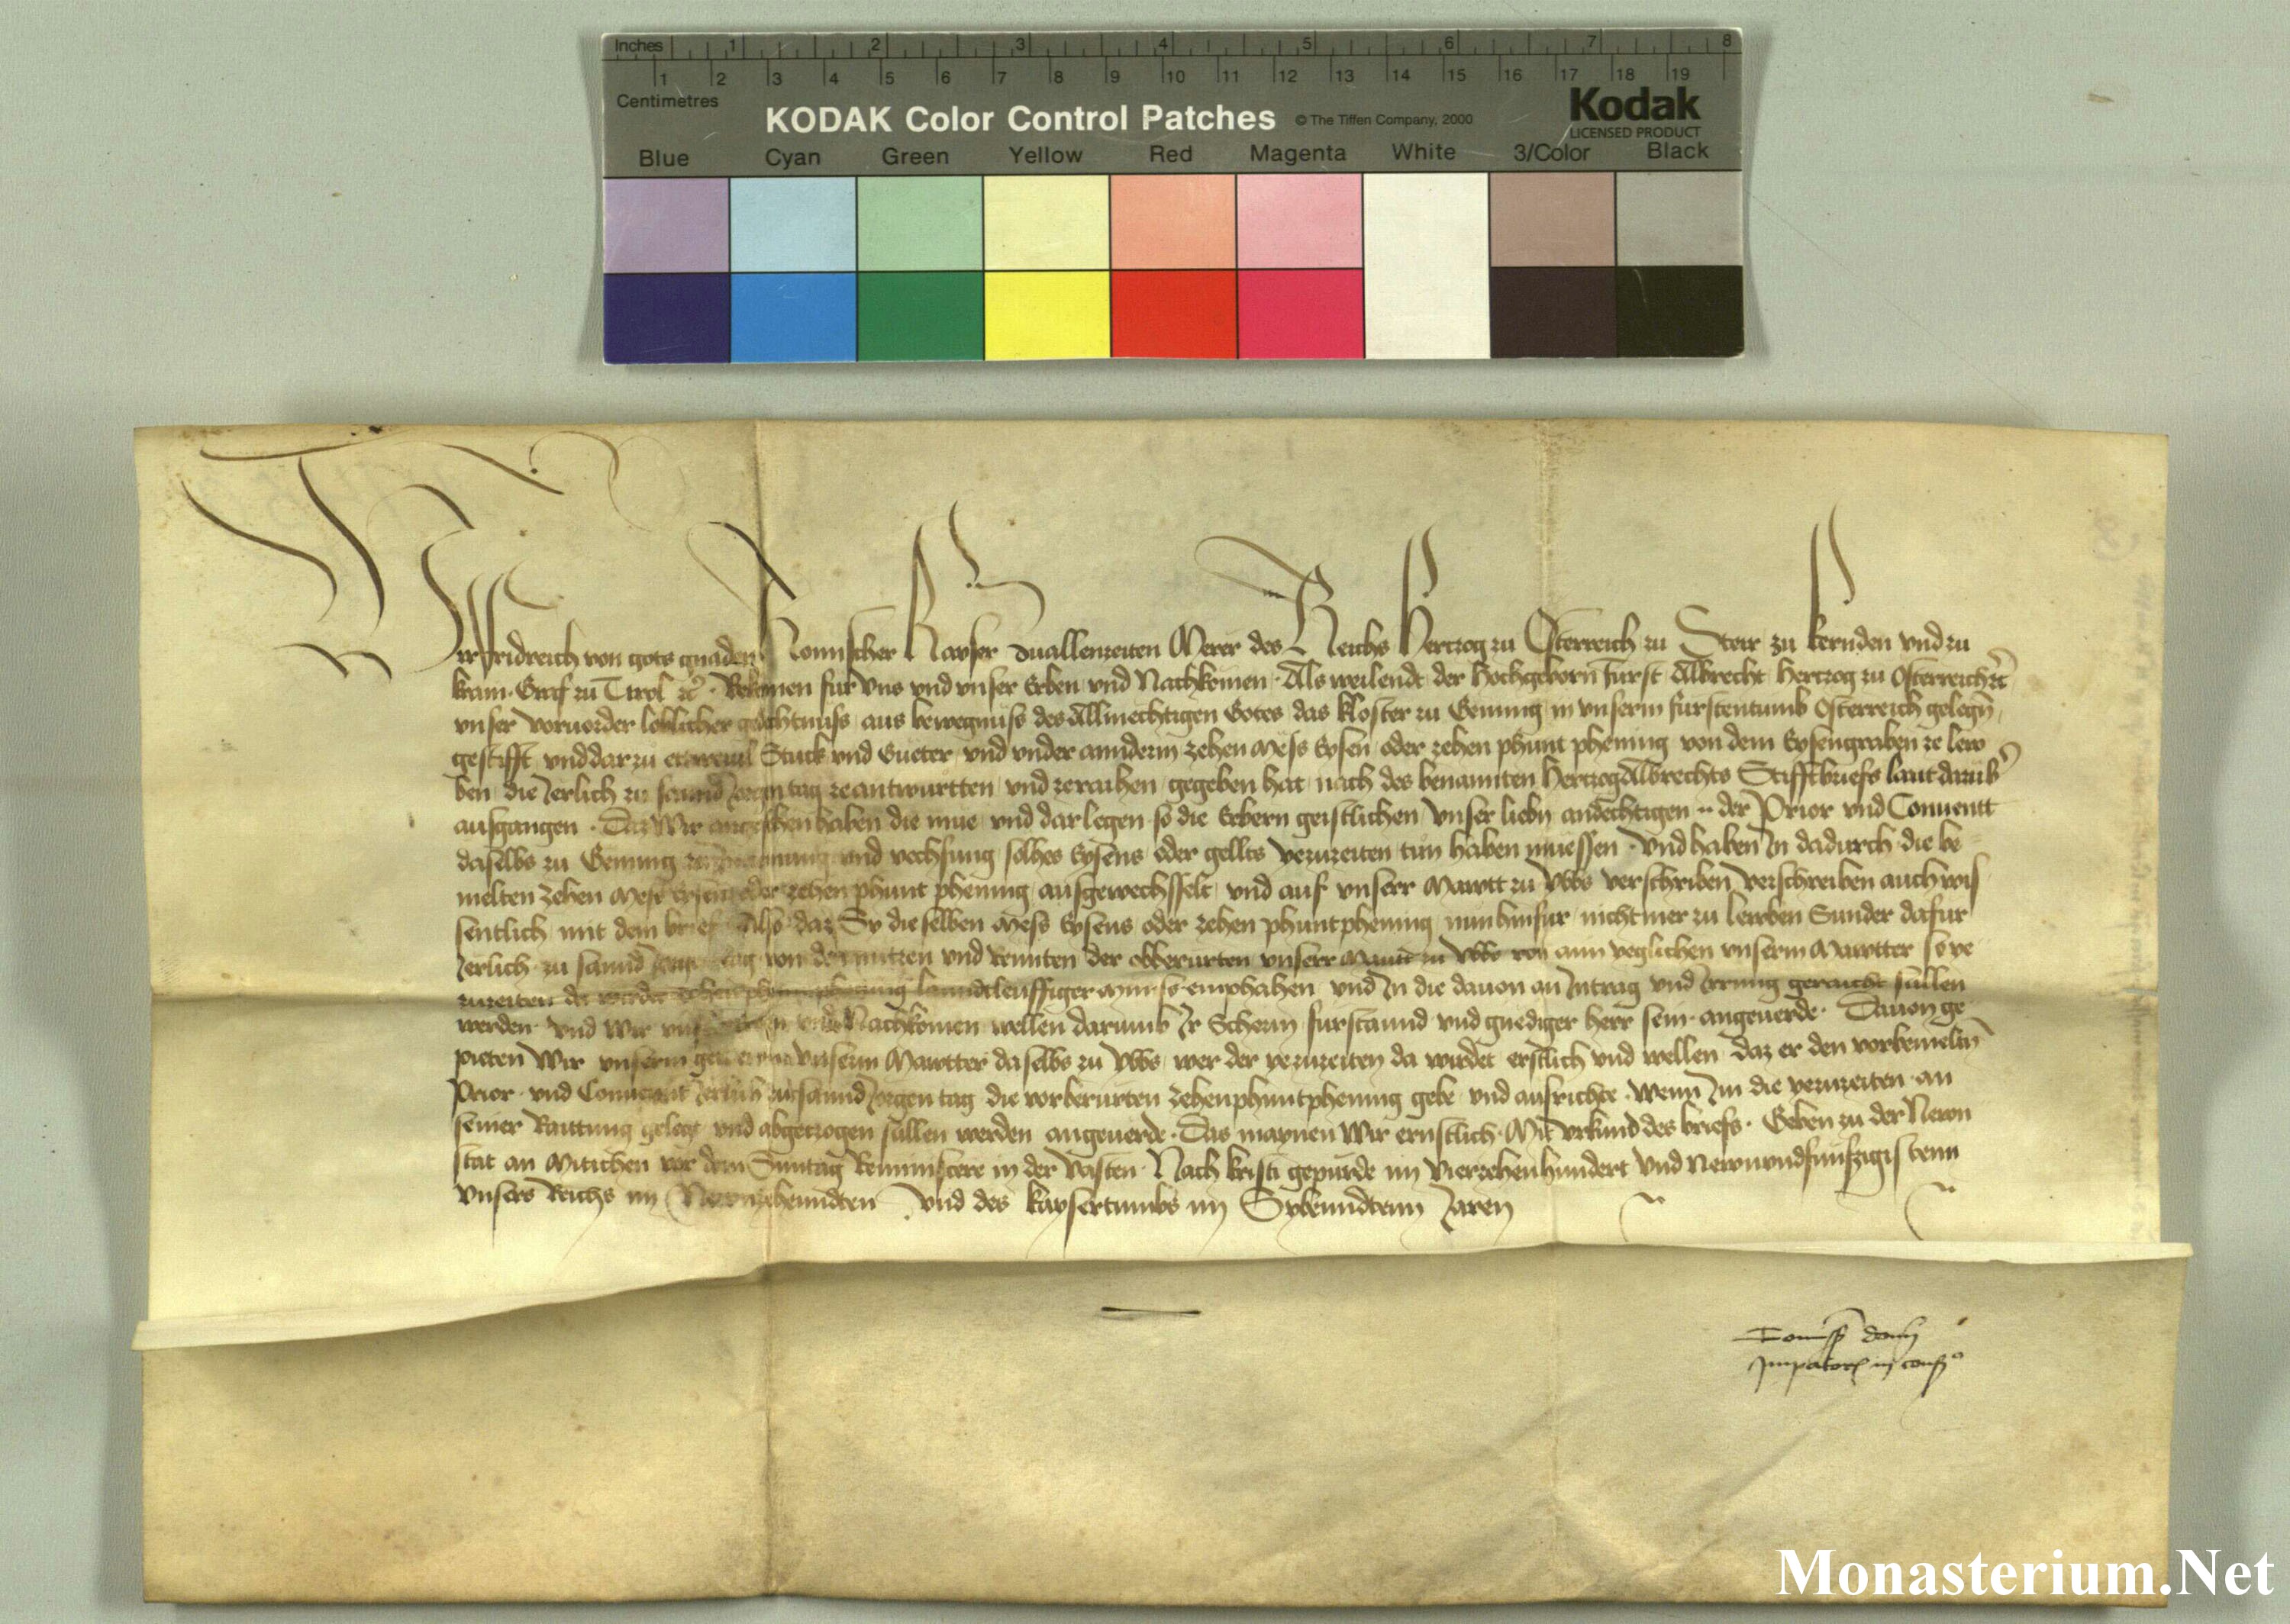 Inches 1 2 3 4 5 6 7 8
1 2 3 4 5 6 7 8 9 10 11 12 13 14 15 16 17 18 19
Centimetres
KODAK Color Control Patches © The Tiffen Company, 2000
Kodak
LICENSED PRODUCT
Blue Cyan Green Yellow Red Magenta White 3/Color Black
Wir Fridreich von gots gnaden Romischer Kayser zuallenzeiten Merer des Reichs Hertzog zu Österreich zu Steir zu Kernden vnd zu
krain Graf zu Tirol etc Bekennen fur vns vnd vnser Erben vnd Nachkomen Als weilendt der Hochgeborn Furst Albrecht Hertzog zu Österreich etc
vnser voruorder loblicher gedechtnüss aus bewegnüss des Allmechtigen Gotes das kloster zu Gemnng in vnserm furstentumb Österreich gelegn
gestifft vnd darzu ettweuil Stuck vnd Gueter vnd vnder annderm zehen Mess Eysen oder zehen phunt phening von dem Eysengraben ze Lew
ben die Jerlich zu sannd Jorgen tag zeantwurtten vnd zeraihen gegeben hat nach des benannten Hertzog Albrechts Stifftbriefs laut darüb
ausgangen Daz Wir angesehen haben die mue vnd darlegen so die Erbern geistlichen vnser liebn andechtigen der Prior vnd Conuentt
daselbs zu Gemnng vnd vechsung solhes Eysens oder gellts yezuzeiten tün haben müessen vnd haben In dadurch die be
melten zehen Mess Eysens oder zehen phunt phening ausgewechsselt vnd auf vnserr Mawtt zu Ybbs verschriben verschreiben auch wis
sentlich mit dem brief Also daz Sy dieselben Mess Eysens oder zehen phunt phening nunhinfur nichtmer zu lewben Sunder dafur
Jerlich zu sannd Jorgen tag von den nutzen vnd Rennten der obberurten vnserr Mautt zu Ybbs von ainn yeglichen vnserm Mawtter so ye
zuzeiten da wirdet zehen phunt phening lanndtleuffiger Münss emphahen vnd In die dauon an Intrag vnd Irrung geraicht sullen
werden vnd Wir vnser Erben vnd Nachkomen wellen darumb Ir Scherm furstannd vnd gnediger herr sein angeuerde Dauon ge
pieten Wir vnserm vnserm Mawtter daselbs zu Ybbs wer der yezuzeiten da wirdet ernstlich vnd wellen daz er den vorbemeltn
Prior vnd Conuent Jerlich zu sannd Jorgen tag die vorberurten zehen phunt phening gebe vnd ausrichte Wenn Im die yezuzeiten an
seiner Raittung gelegt vnd abgetzogen sullen werden angeuerde Das maynen Wir ernstlich Mit vrkund des briefs Geben zu der Newn
stat an Mitichen vor dem Suntag Reminiscere in der Vasten Nach kristi gepurde im Vierzehenhundert vnd Newnvndfunfzigistenn
vnsers Reichs im Newntzehenndten vnd des kaysertumbs im Sybenndtenn Jaren
Imperatoris in consilio
Monasterium.Net